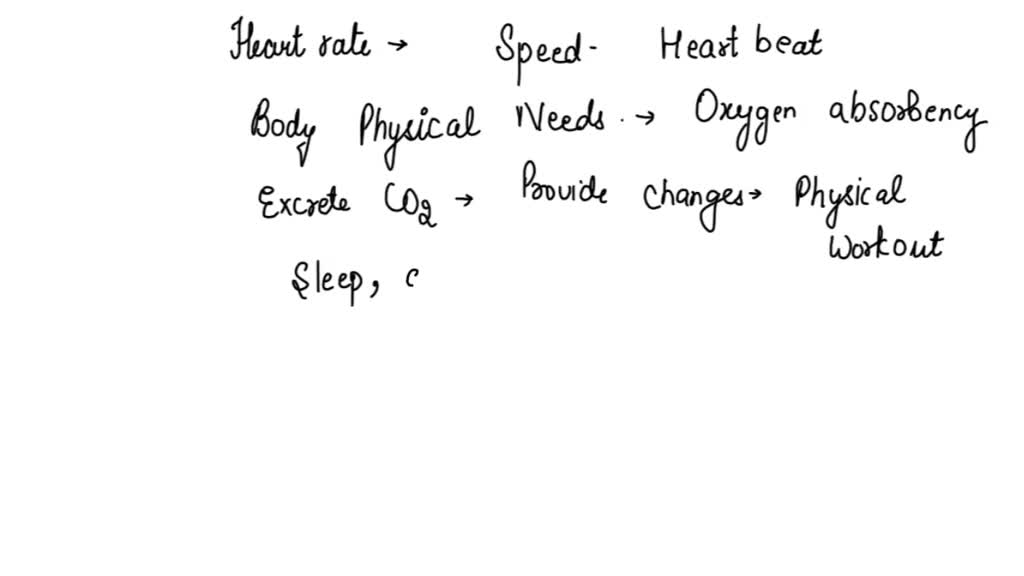 Heart rate → Speed- Heart beat
Body Physical Needs. → Oxygen absorbency
Excrete CO2 → Provide changes→ Physical
Workout
Sleep, c